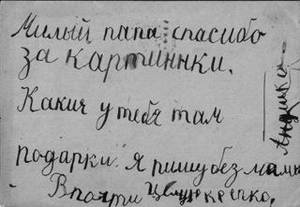 Милый папа спасибо
за картиннки.
Какие у тебя там
подарки. Я пишу без мамы
Целую крепко.
Андрюшка